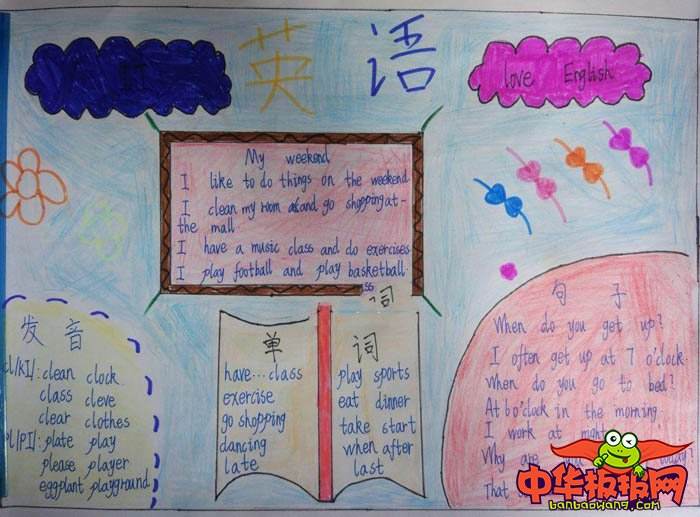 英语
love English
My weekend
I like to do things on the weekend
I clean my room and go shopping at
the mall
I have a music class and do exercises
I play football and play basketball.
发音
cl/kl/: clean clock
class cleve
clear clothes
pl/pl/: plate play
please player
eggplant playground
单词
have...class
exercise
go shopping
dancing
late
词
play sports
eat dinner
take start
when after
last
句子
When do you get up?
I often get up at 7 o'clock
When do you go to bed?
At 6 o'clock in the morning
I work at
Why are you
That
中华板报网
banbaowang.com